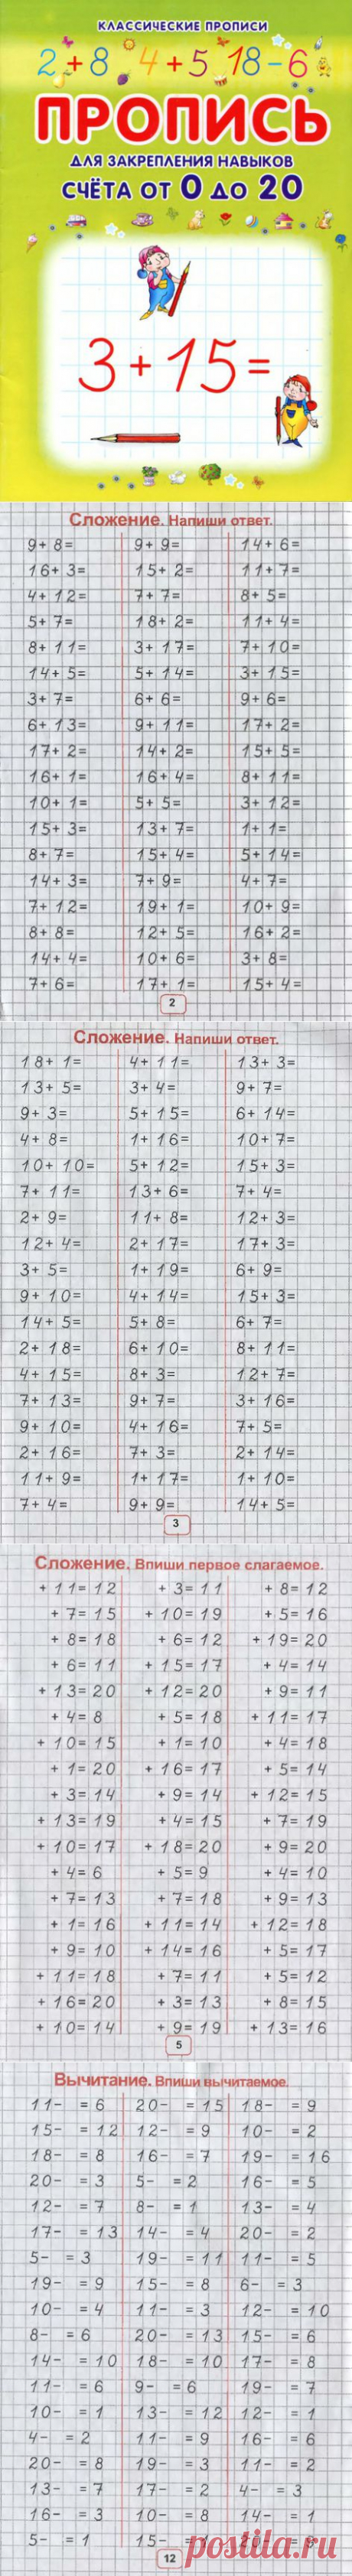 КЛАССИЧЕСКИЕ ПРОПИСИ
2+8 4+5 18-6
ПРОПИСЬ
ДЛЯ ЗАКРЕПЛЕНИЯ НАВЫКОВ
СЧЁТА ОТ 0 ДО 20
3+15=
Сложение. Напиши ответ.
9+8= 9+9= 14+6=
16+3= 15+2= 11+7=
4+12= 7+7= 8+5=
5+7= 18+2= 11+4=
8+11= 3+17= 7+10=
14+5= 5+14= 3+15=
3+7= 6+6= 9+6=
6+13= 9+11= 17+2=
17+2= 14+2= 15+5=
16+1= 16+4= 8+11=
10+1= 5+5= 3+12=
15+3= 13+7= 1+1=
8+7= 15+4= 5+14=
14+3= 7+9= 4+7=
7+12= 19+1= 10+9=
8+8= 12+5= 16+2=
14+4= 10+6= 3+8=
7+6= 17+1= 15+4=
2
Сложение. Напиши ответ.
18+1= 4+11= 13+3=
13+5= 3+4= 9+7=
9+3= 5+15= 6+14=
4+8= 1+16= 10+7=
10+10= 5+12= 15+3=
7+11= 13+6= 7+4=
2+9= 11+8= 12+3=
12+4= 2+17= 17+3=
3+5= 1+19= 6+9=
9+10= 4+14= 15+3=
14+5= 5+8= 6+7=
2+18= 6+10= 8+11=
4+15= 8+3= 12+7=
7+13= 9+7= 3+16=
9+10= 4+16= 7+5=
2+16= 7+3= 2+14=
11+9= 1+17= 1+10=
7+4= 9+9= 14+5=
3
Сложение. Впиши первое слагаемое.
+11=12 +3=11 +8=12
+7=15 +10=19 +5=16
+8=18 +6=12 +19=20
+6=11 +15=17 +4=14
+13=20 +12=20 +9=11
+4=8 +5=18 +11=17
+10=15 +1=10 +4=18
+1=20 +16=17 +5=14
+3=14 +9=14 +12=15
+13=19 +4=15 +7=19
+10=17 +18=20 +9=20
+4=6 +5=9 +4=10
+7=13 +7=18 +9=13
+1=16 +11=14 +12=18
+9=10 +14=16 +5=17
+11=18 +7=11 +5=12
+16=20 +3=13 +8=15
+10=14 +9=19 +13=16
5
Вычитание. Впиши вычитаемое.
11- =6 20- =15 18- =9
15- =12 12- =9 10- =2
18- =8 16- =7 19- =16
20- =3 5- =2 16- =5
12- =7 8- =1 13- =4
17- =13 14- =4 20- =2
5- =3 19- =11 11- =5
19- =9 15- =8 6- =3
10- =4 11- =3 12- =10
8- =6 20- =13 15- =6
14- =10 18- =10 17- =8
11- =6 9- =6 19- =7
10- =1 13- =12 12- =1
4- =2 11- =9 16- =6
20- =8 19- =3 11- =2
13- =7 17- =2 4- =3
16- =3 10- =8 14- =1
5- =1 15-
12
postila.ru